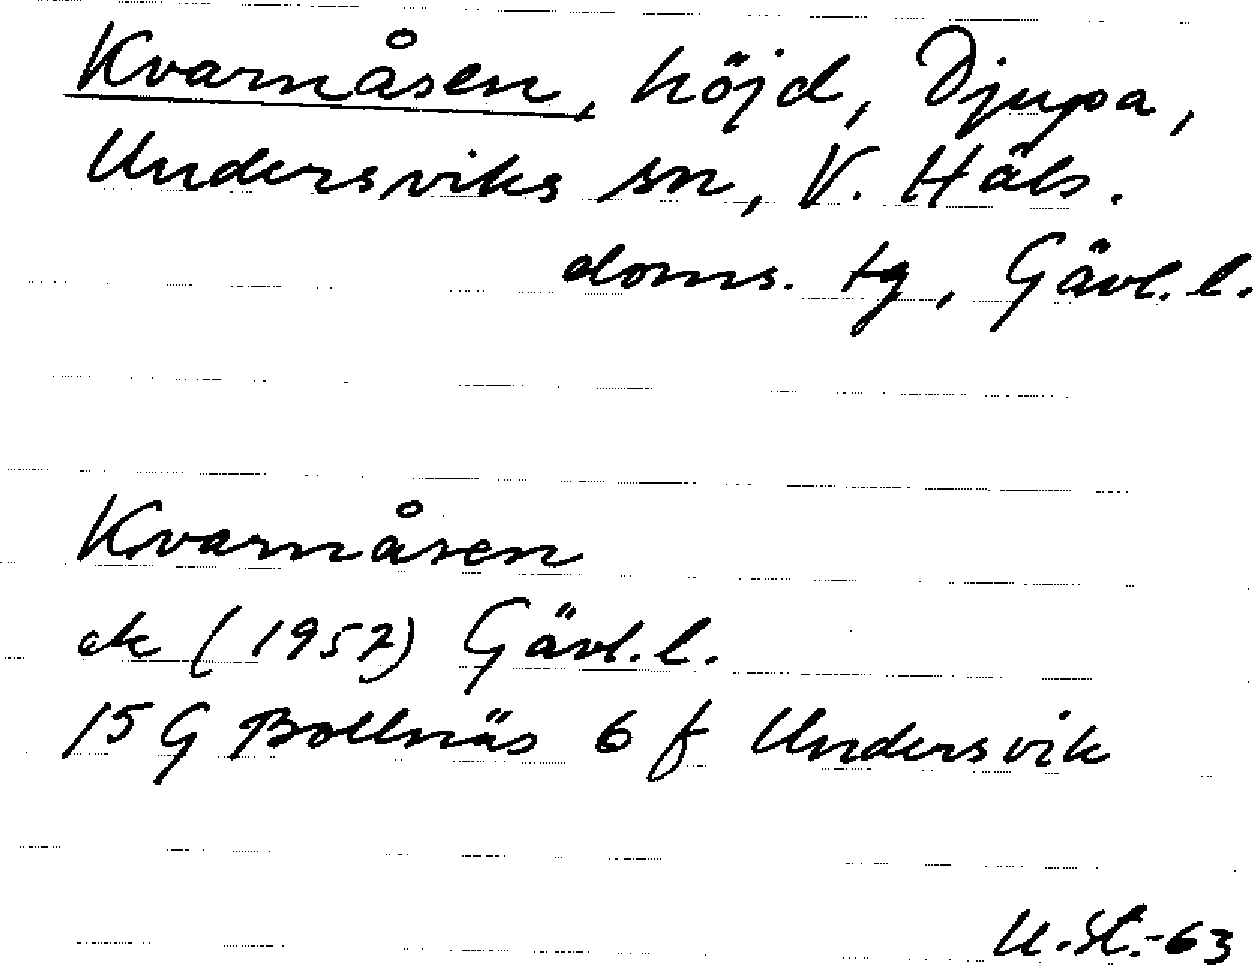 Kvarnåsen, höjd, Djupa,
Undersviks sn, V. Häls.
doms. tg, Gävl. l.
Kvarnåsen
ek (1957) Gävl. l.
15 G Bollnäs 6 f Undersvik
U. St.-63